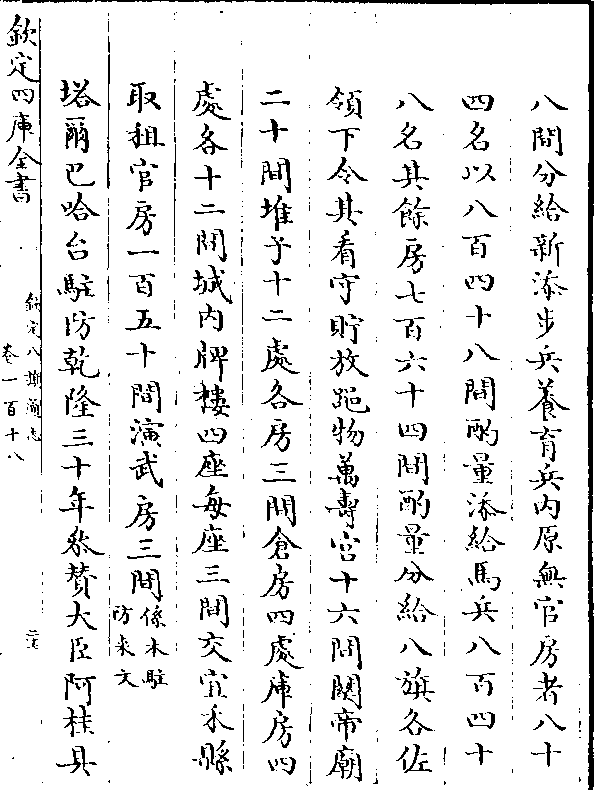 八間分給新添步兵養育兵内原無官房者八十
四名以八百四十八間酌量添給馬兵八百四十
八名其餘房七百六十四間酌量分給八旗各佐
領下令其看守貯放砲物萬壽宮十六間關帝廟
二十間堆子十二處各房三間倉房四處庫房四
處各十二間城内牌樓四座每座三間交宜禾縣
取租官房一百五十間演武房三間係本駐
防来文
塔爾巴哈台駐防乾隆三十年叅賛大臣阿桂具
欽定四庫全書
欽定八旗通志
卷一百十八